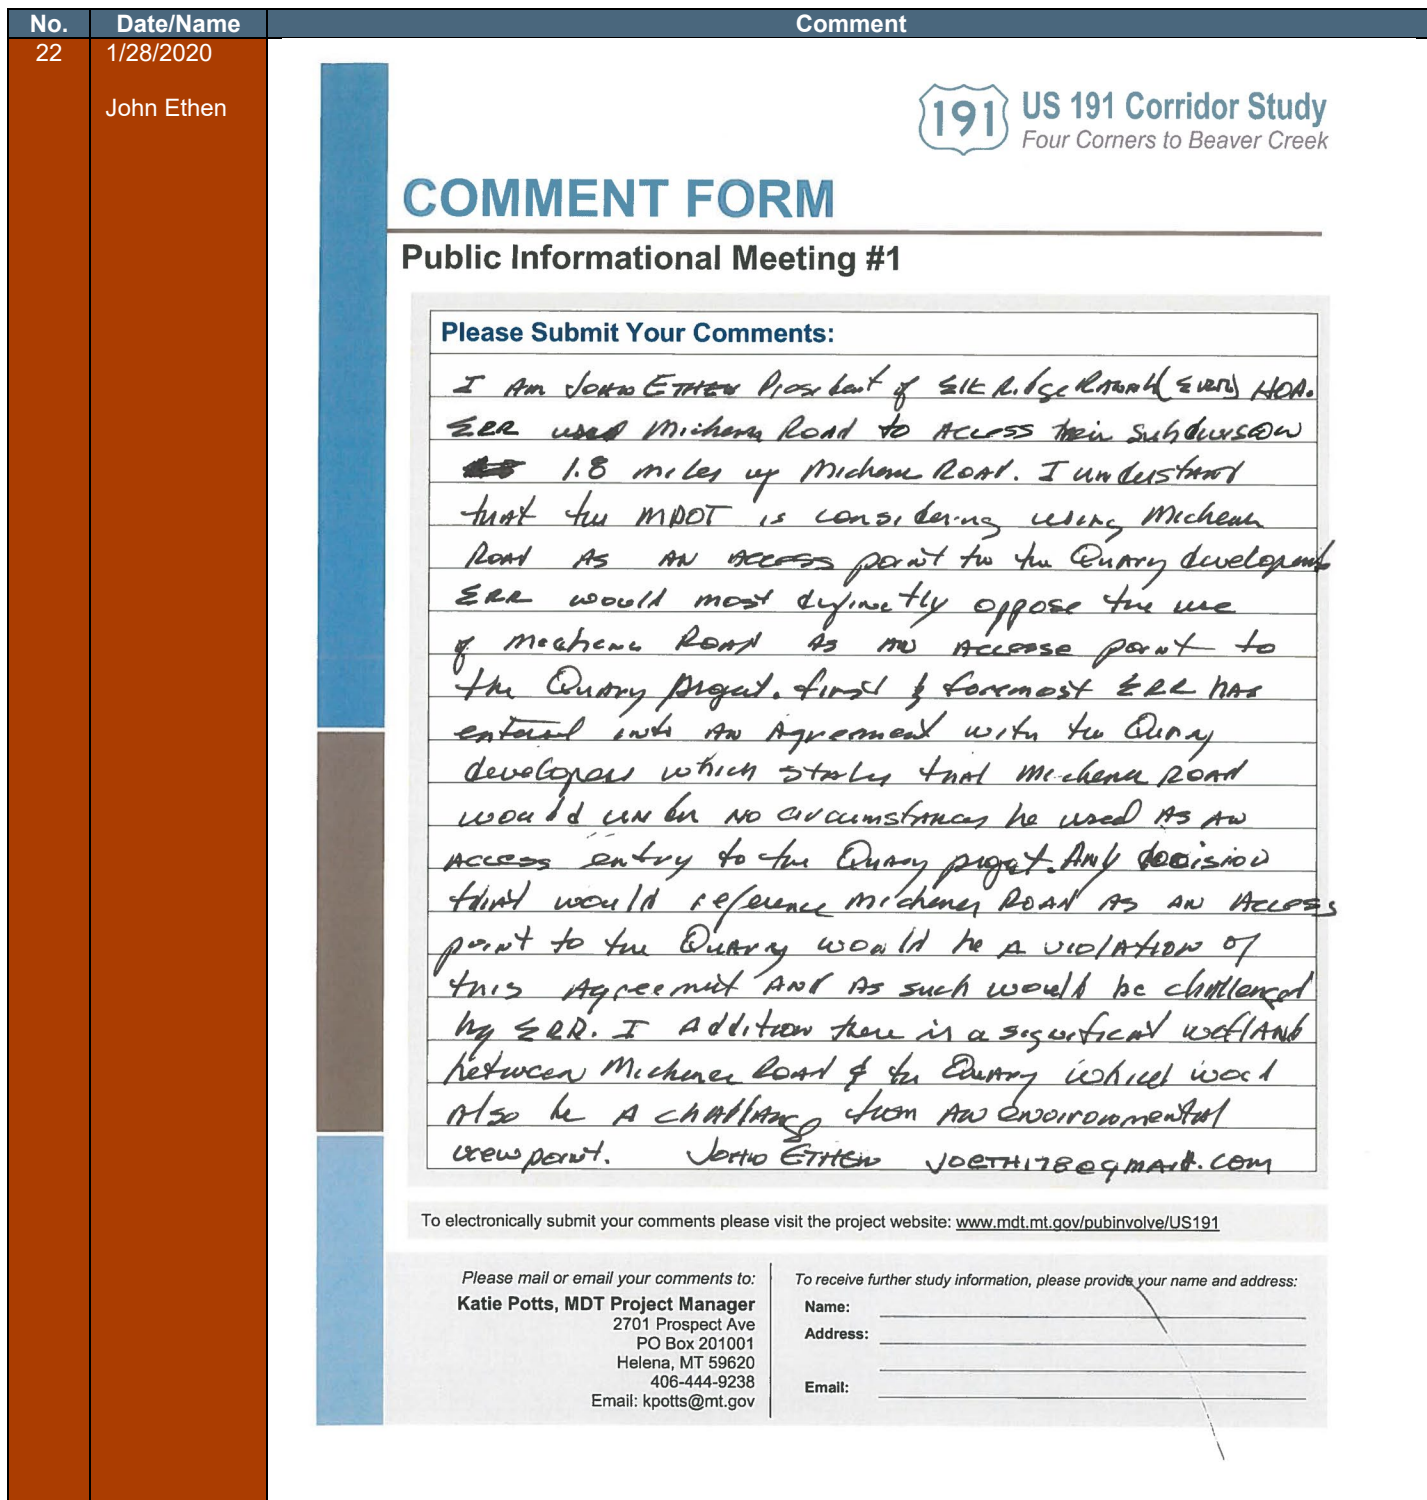 No. Date/Name Comment
22 1/28/2020
John Ethen
191 US 191 Corridor Study
Four Corners to Beaver Creek
COMMENT FORM
Public Informational Meeting #1
Please Submit Your Comments:
I Am John Ethen President of Elk Ridge Ranch HOA.
ERR used Michener Road to Access their subdivision
1.8 miles up Michener Road. I understand
that the MDOT is considering using Michener
Road As AN Access point to the Quarry development
ERR would most definetly oppose the use
of Michener Road As AN Accesse point to
the Quarry project. first & foremost ERR has
entered into AN Agreement with the Quarry
developers which states that Michener Road
would under NO circumstances be used As AN
Access entry to the Quarry project. Any decision
that would reference Michener Road As AN Access
point to the Quarry would be A violation of
this Agreement And As such would be challenged
by ERR. I Addition there is a significant wetland
between Michener Road & the Quarry which
Also be A challange from AN environmental
viewpoint. John Ethen
To electronically submit your comments please visit the project website: www.mdt.mt.gov/pubinvolve/US191
Please mail or email your comments to:
Katie Potts, MDT Project Manager
2701 Prospect Ave
PO Box 201001
Helena, MT 59620
406-444-9238
Email: kpotts@mt.gov
To receive further study information, please provide your name and address:
Name:
Address:
Email: